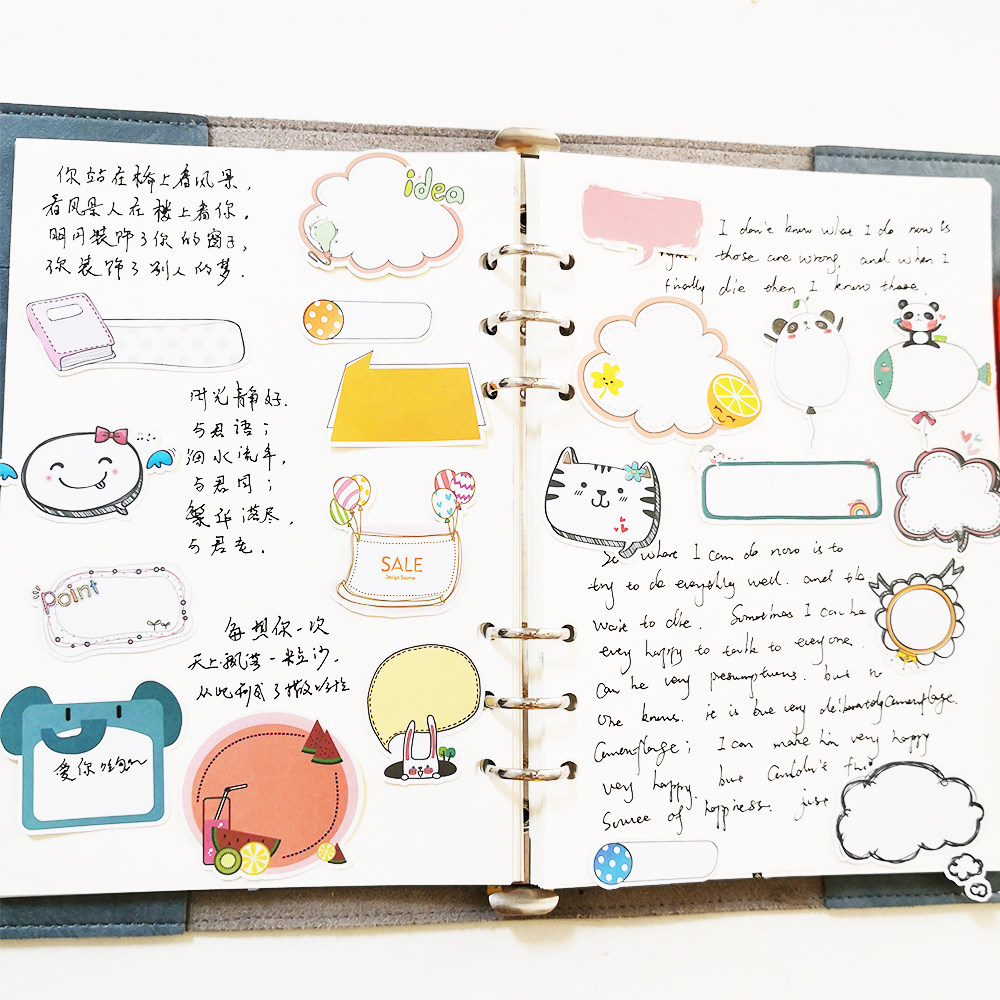 你站在桥上看风景，
看风景人在楼上看你。
明月装饰了你的窗子，
你装饰了别人的梦.
idea
时光静好.
与君语；
细水流年，
与君同；
繁华落尽，
与君老.
SALE
Design Source
Point
每想你一次
天上飘落一粒沙.
从此形成了撒哈拉
爱你
I don't know what I do now is
right. those are wrong, and when I
finally die then I know these.
So what I can do now is to
try to do everything well. and then
wait to die. Sometimes I can be
very happy to talk to everyone.
can be very presumptuous. but no
one knows. it is but very deliberately camouflage.
Camouflage; I can make him very happy
very happy. but couldn't find
source of happiness. just